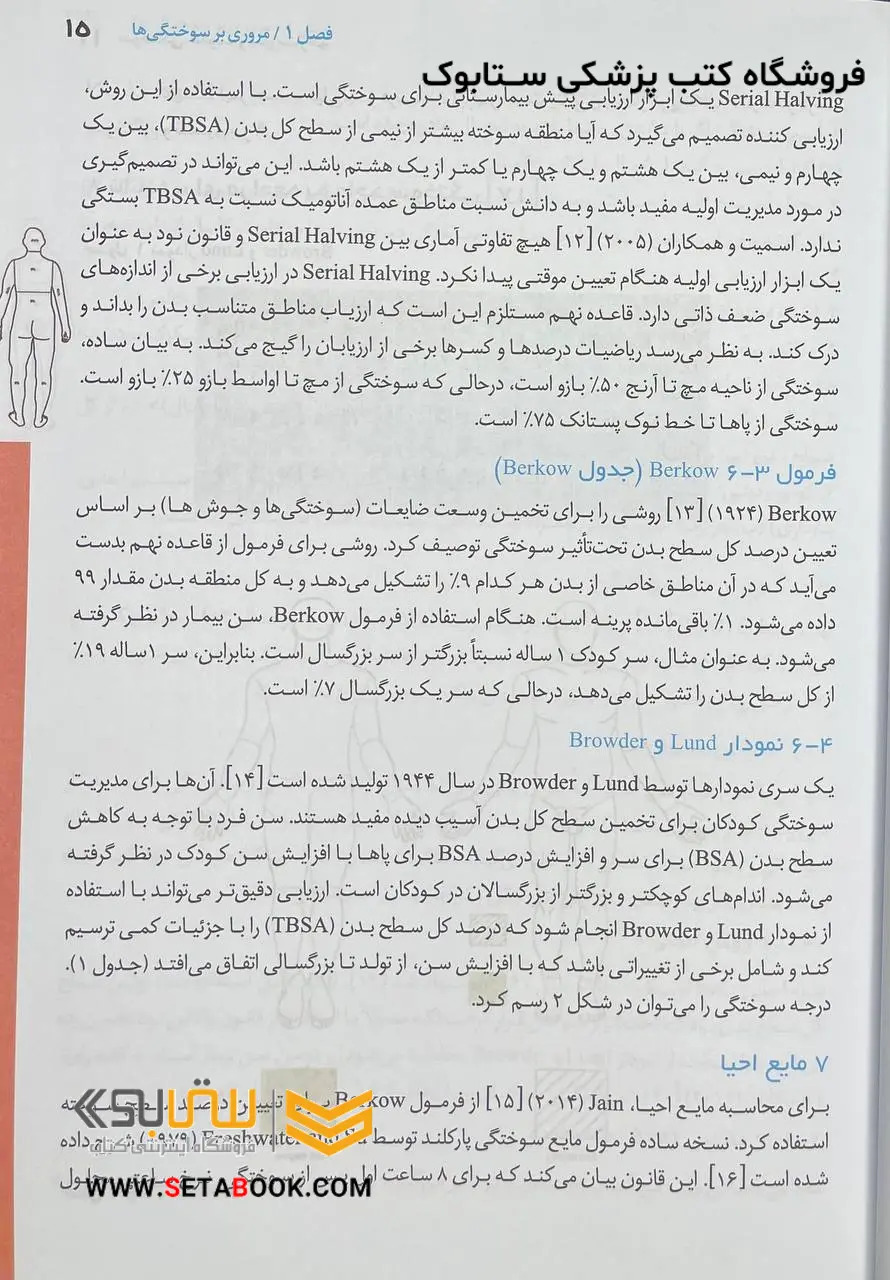 فصل ۱ / مروری بر سوختگی‌ها ۱۵
فروشگاه کتب پزشکی ستابوک
Serial Halving یک ابزار ارزیابی پیش بیمارستانی برای سوختگی است. با استفاده از این روش،
ارزیابی کننده تصمیم می‌گیرد که آیا منطقه سوخته بیشتر از نیمی از سطح کل بدن (TBSA)، بین یک
چهارم و نیمی، بین یک هشتم و یک چهارم یا کمتر از یک هشتم باشد. این می‌تواند در تصمیم‌گیری
در مورد مدیریت اولیه مفید باشد و به دانش نسبت مناطق عمده آناتومیک نسبت به TBSA بستگی
ندارد. اسمیت و همکاران (۲۰۰۵) [۱۲] هیچ تفاوتی آماری بین Serial Halving و قانون نود به عنوان
یک ابزار ارزیابی اولیه هنگام تعیین موقتی پیدا نکرد. Serial Halving در ارزیابی برخی از اندازه‌های
سوختگی ضعف ذاتی دارد. قاعده نهم مستلزم این است که ارزیاب مناطق متناسب بدن را بداند و
درک کند. به نظر می‌رسد ریاضیات درصدها و کسرها برخی از ارزیابان را گیج می‌کند. به بیان ساده،
سوختگی از ناحیه مچ تا آرنج ۵۰٪ بازو است، درحالی که سوختگی از مچ تا اواسط بازو ۲۵٪ بازو است.
سوختگی از پاها تا خط نوک پستانک ۷۵٪ است.
فرمول ۳-۶ Berkow (جدول Berkow)
Berkow (۱۹۲۴) [۱۳] روشی را برای تخمین وسعت ضایعات (سوختگی‌ها و جوش ها) بر اساس
تعیین درصد کل سطح بدن تحت‌تأثیر سوختگی توصیف کرد. روشی برای فرمول از قاعده نهم بدست
می‌آید که در آن مناطق خاصی از بدن هر کدام ۹٪ را تشکیل می‌دهد و به کل منطقه بدن مقدار ۹۹
داده می‌شود. ۱٪ باقی‌مانده پرینه است. هنگام استفاده از فرمول Berkow، سن بیمار در نظر گرفته
می‌شود. به عنوان مثال، سر کودک ۱ ساله نسبتاً بزرگتر از سر بزرگسال است. بنابراین، سر ۱ساله ۱۹٪
از کل سطح بدن را تشکیل می‌دهد، درحالی که سر یک بزرگسال ۷٪ است.
۶-۴ نمودار Lund و Browder
یک سری نمودارها توسط Lund و Browder در سال ۱۹۴۴ تولید شده است [۱۴]. آن‌ها برای مدیریت
سوختگی کودکان برای تخمین سطح کل بدن آسیب دیده مفید هستند. سن فرد با توجه به کاهش
سطح بدن (BSA) برای سر و افزایش درصد BSA برای پاها با افزایش سن کودک در نظر گرفته
می‌شود. اندام‌های کوچکتر و بزرگتر از بزرگسالان در کودکان است. ارزیابی دقیق‌تر می‌تواند با استفاده
از نمودار Lund و Browder انجام شود که درصد کل سطح بدن (TBSA) را با جزئیات کمی ترسیم
کند و شامل برخی از تغییراتی باشد که با افزایش سن، از تولد تا بزرگسالی اتفاق می‌افتد (جدول ۱).
درجه سوختگی را می‌توان در شکل ۲ رسم کرد.
۷ مایع احیا
برای محاسبه مایع احیا، Jain (۲۰۱۴) [۱۵] از فرمول Berkow برای تعیین درصد سطح
استفاده کرد. نسخه ساده فرمول مایع سوختگی پارکلند توسط Freshwater and Su (۱۹۷۹) داده
شده است [۱۶]. این قانون بیان می‌کند که برای ۸ ساعت اول پس از سوختگی،
ستابوک
فروشگاه اینترنتی کتاب
WWW.SETABOOK.COM